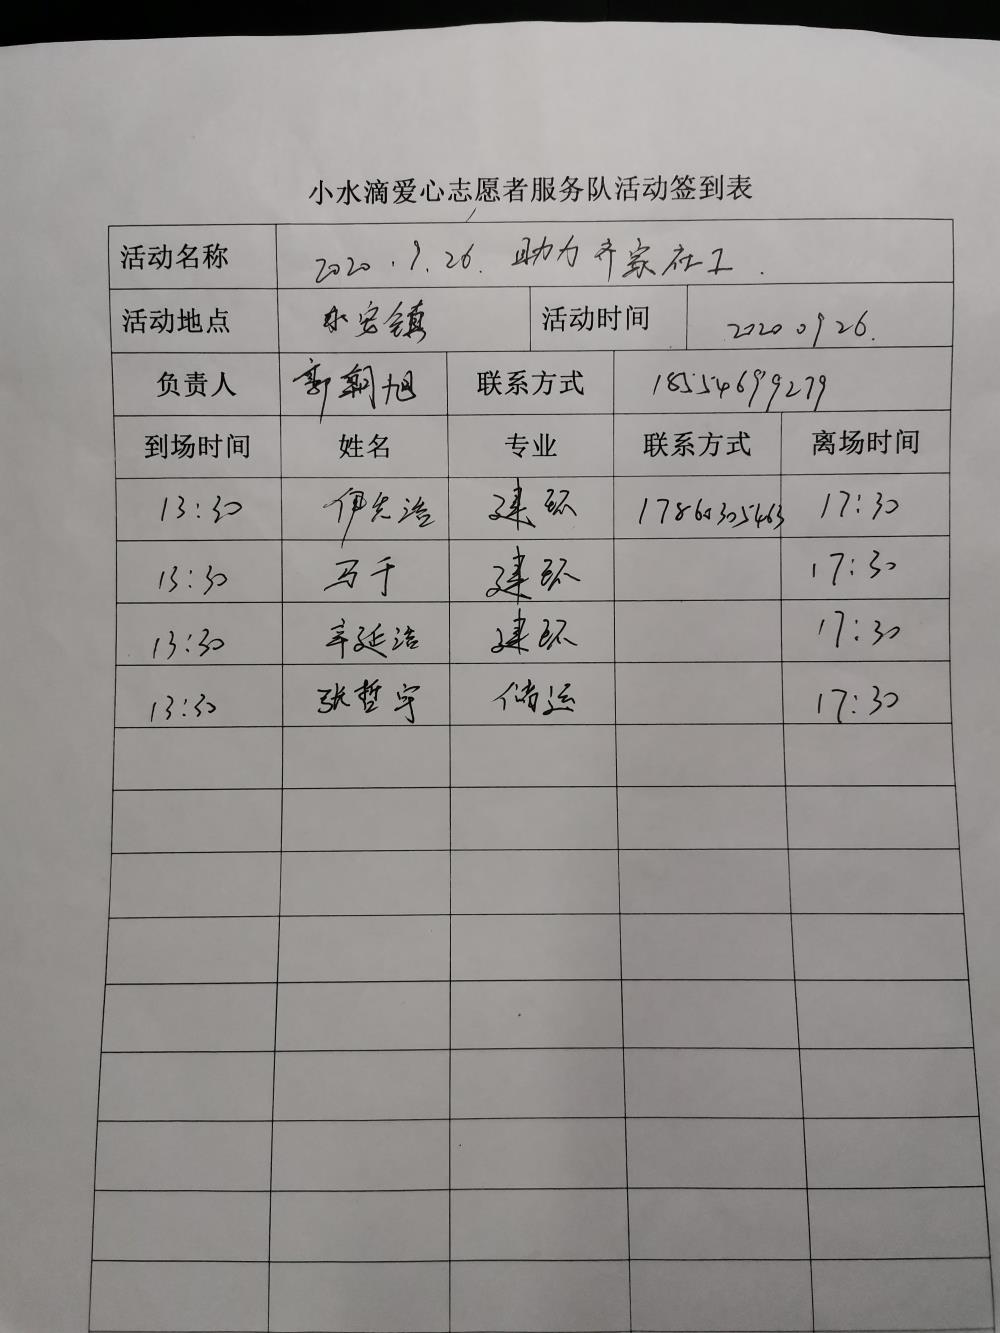 小水滴爱心志愿者服务队活动签到表
活动名称 2020.9.26. 助力齐家社工.
活动地点 永安镇 活动时间 20200926.
负责人 郭朝旭 联系方式 18554699279
到场时间 姓名 专业 联系方式 离场时间
13:30 伊先浩 建环 17860305463 17:30
13:30 马千 建环 17:30
13:30 辛延浩 建环 17:30
13:30 张哲宇 储运 17:30